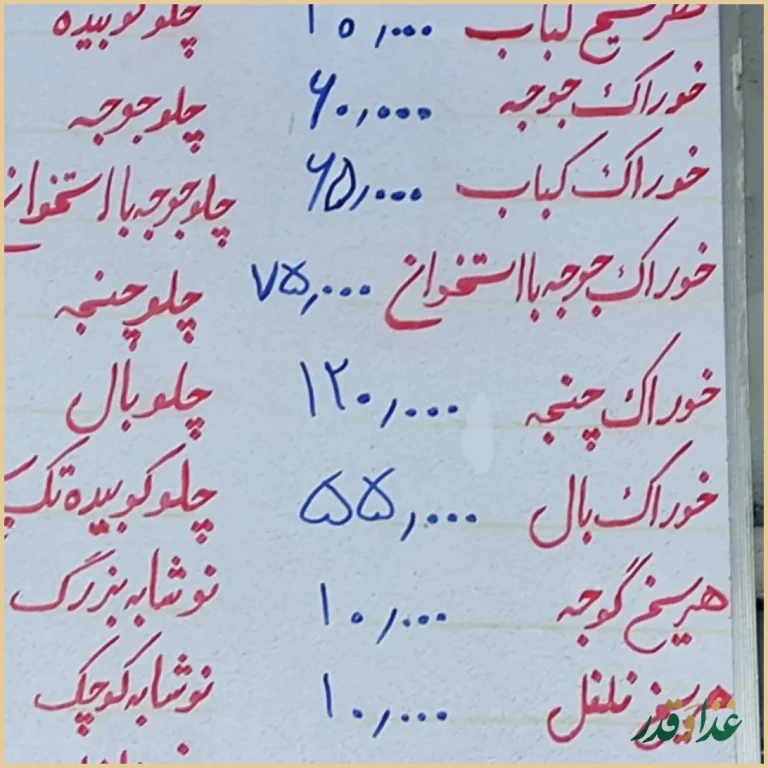 هر سیخ کباب ۱۰,۰۰۰ چلو کوبیده
خوراک جوجه ۶۰,۰۰۰ چلو جوجه
خوراک کباب ۶۵,۰۰۰ چلو جوجه با استخوان
خوراک جوجه با استخوان ۷۵,۰۰۰ چلو چنجه
خوراک چنجه ۱۲۰,۰۰۰ چلو بال
خوراک بال ۵۵,۰۰۰ چلو کوبیده تک
هر سیخ گوجه ۱۰,۰۰۰ نوشابه بزرگ
هر سیخ فلفل ۱۰,۰۰۰ نوشابه کوچک
غذا و قدر